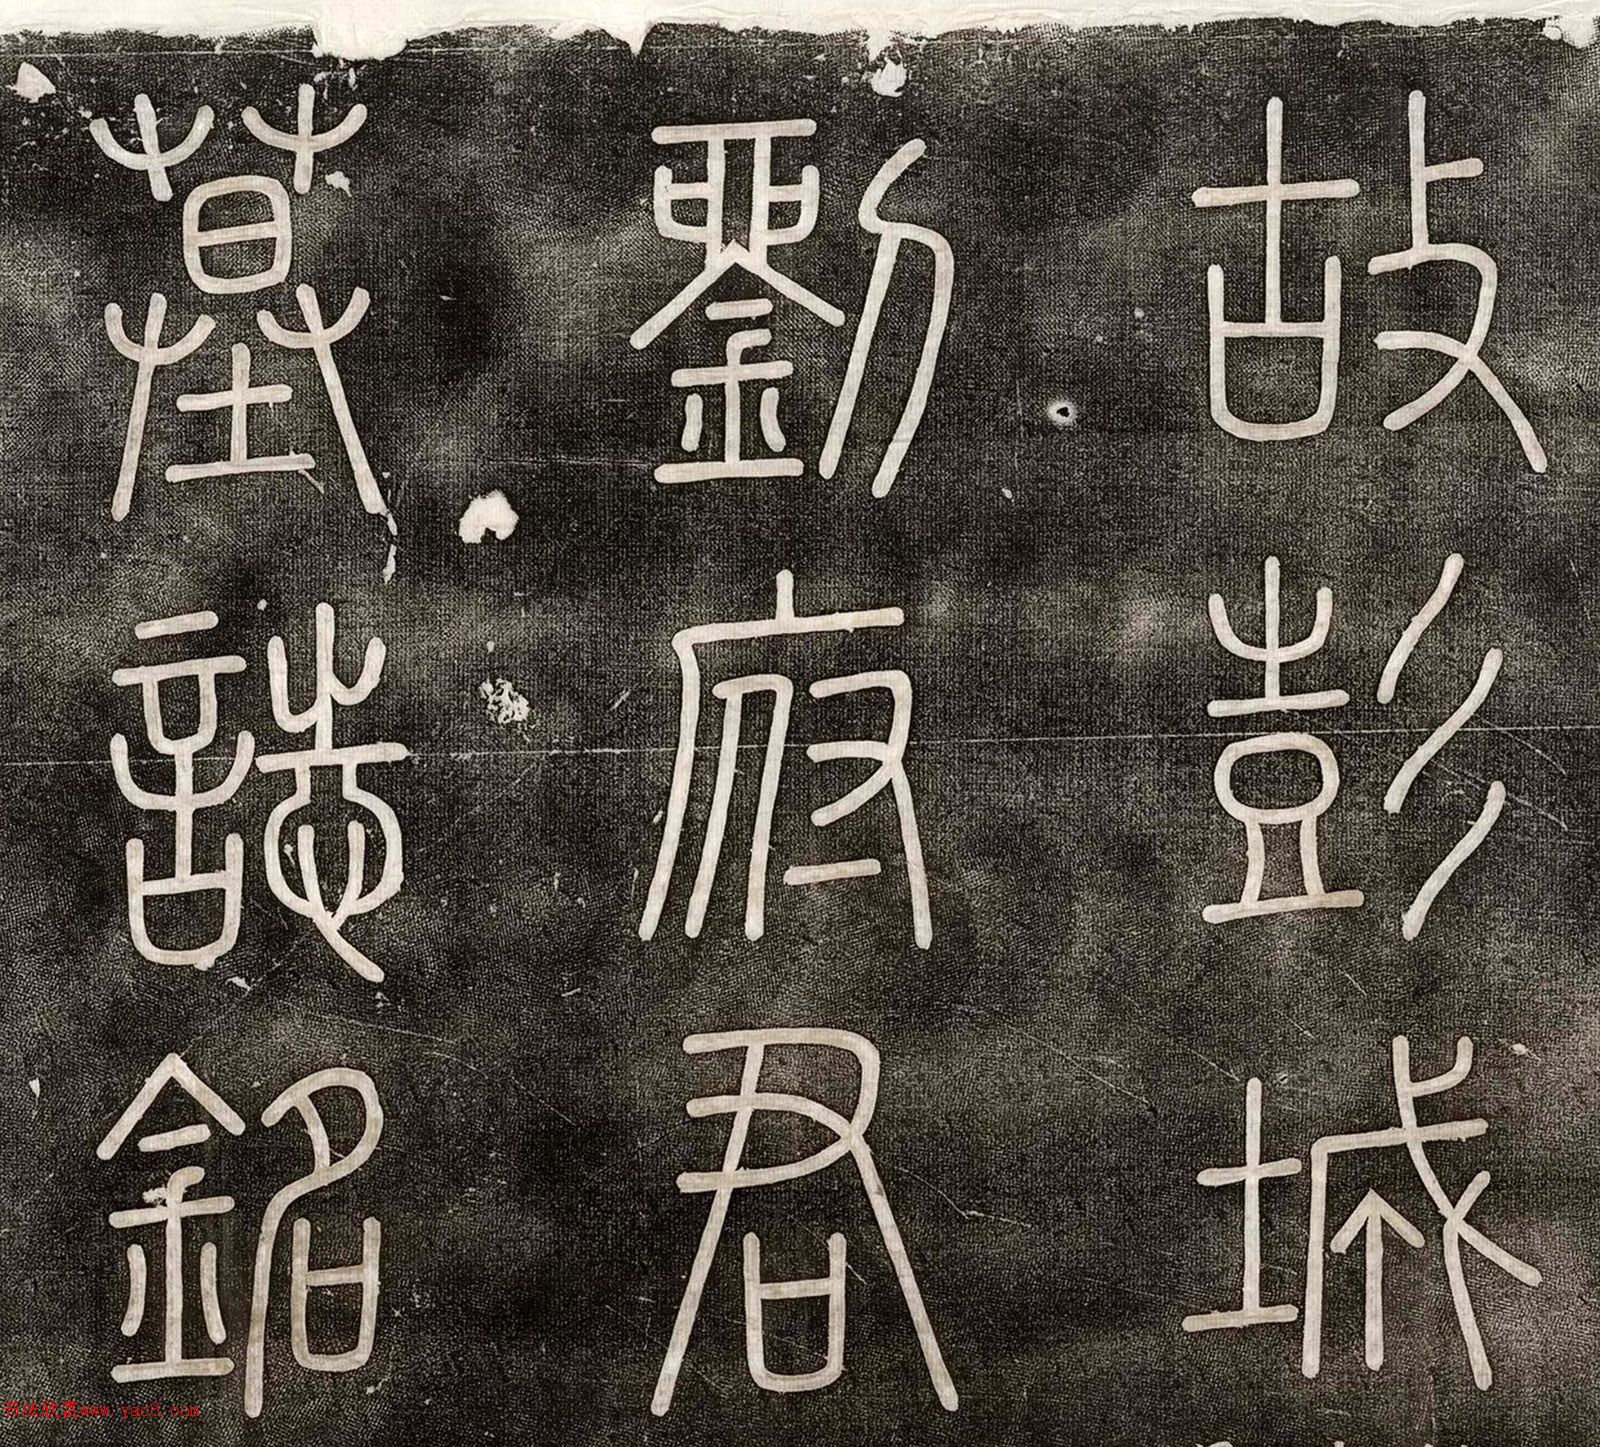 故彭城
劉府君
墓誌銘
书法欣赏www.yac8.com